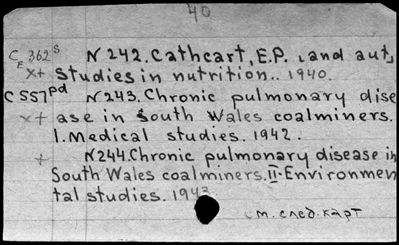 40
C E 362 s N242. Cathcart, E.P. and aut.
x+ Studies in nutrition.. 1940.
C 557 pd N243. Chronic pulmonary dise
x+ ase in South Wales coalminers.
I. Medical studies. 1942.
+ N244. Chronic pulmonary disease in
South Wales coalminers. II. Environmen
tal studies. 1943
см. след. карт